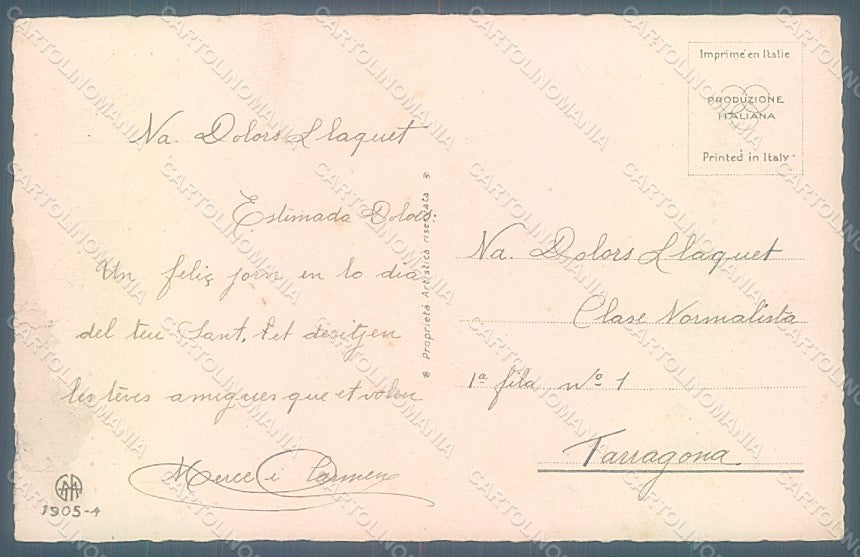 Na. Dolors Llaquet
Estimada Dolors:
Un feliç jorn en lo dia
del teu Sant, tet desitjen
les teves amigues que et volen
Merce i Carmen
1905-4
® Proprietà Artistica riservata ®
Imprimé en Italie
PRODUZIONE
ITALIANA
Printed in Italy
Na. Dolors Llaquet
Clase Normalista
1ª fila nº 1
Tarragona
CARTOLINOMANIA